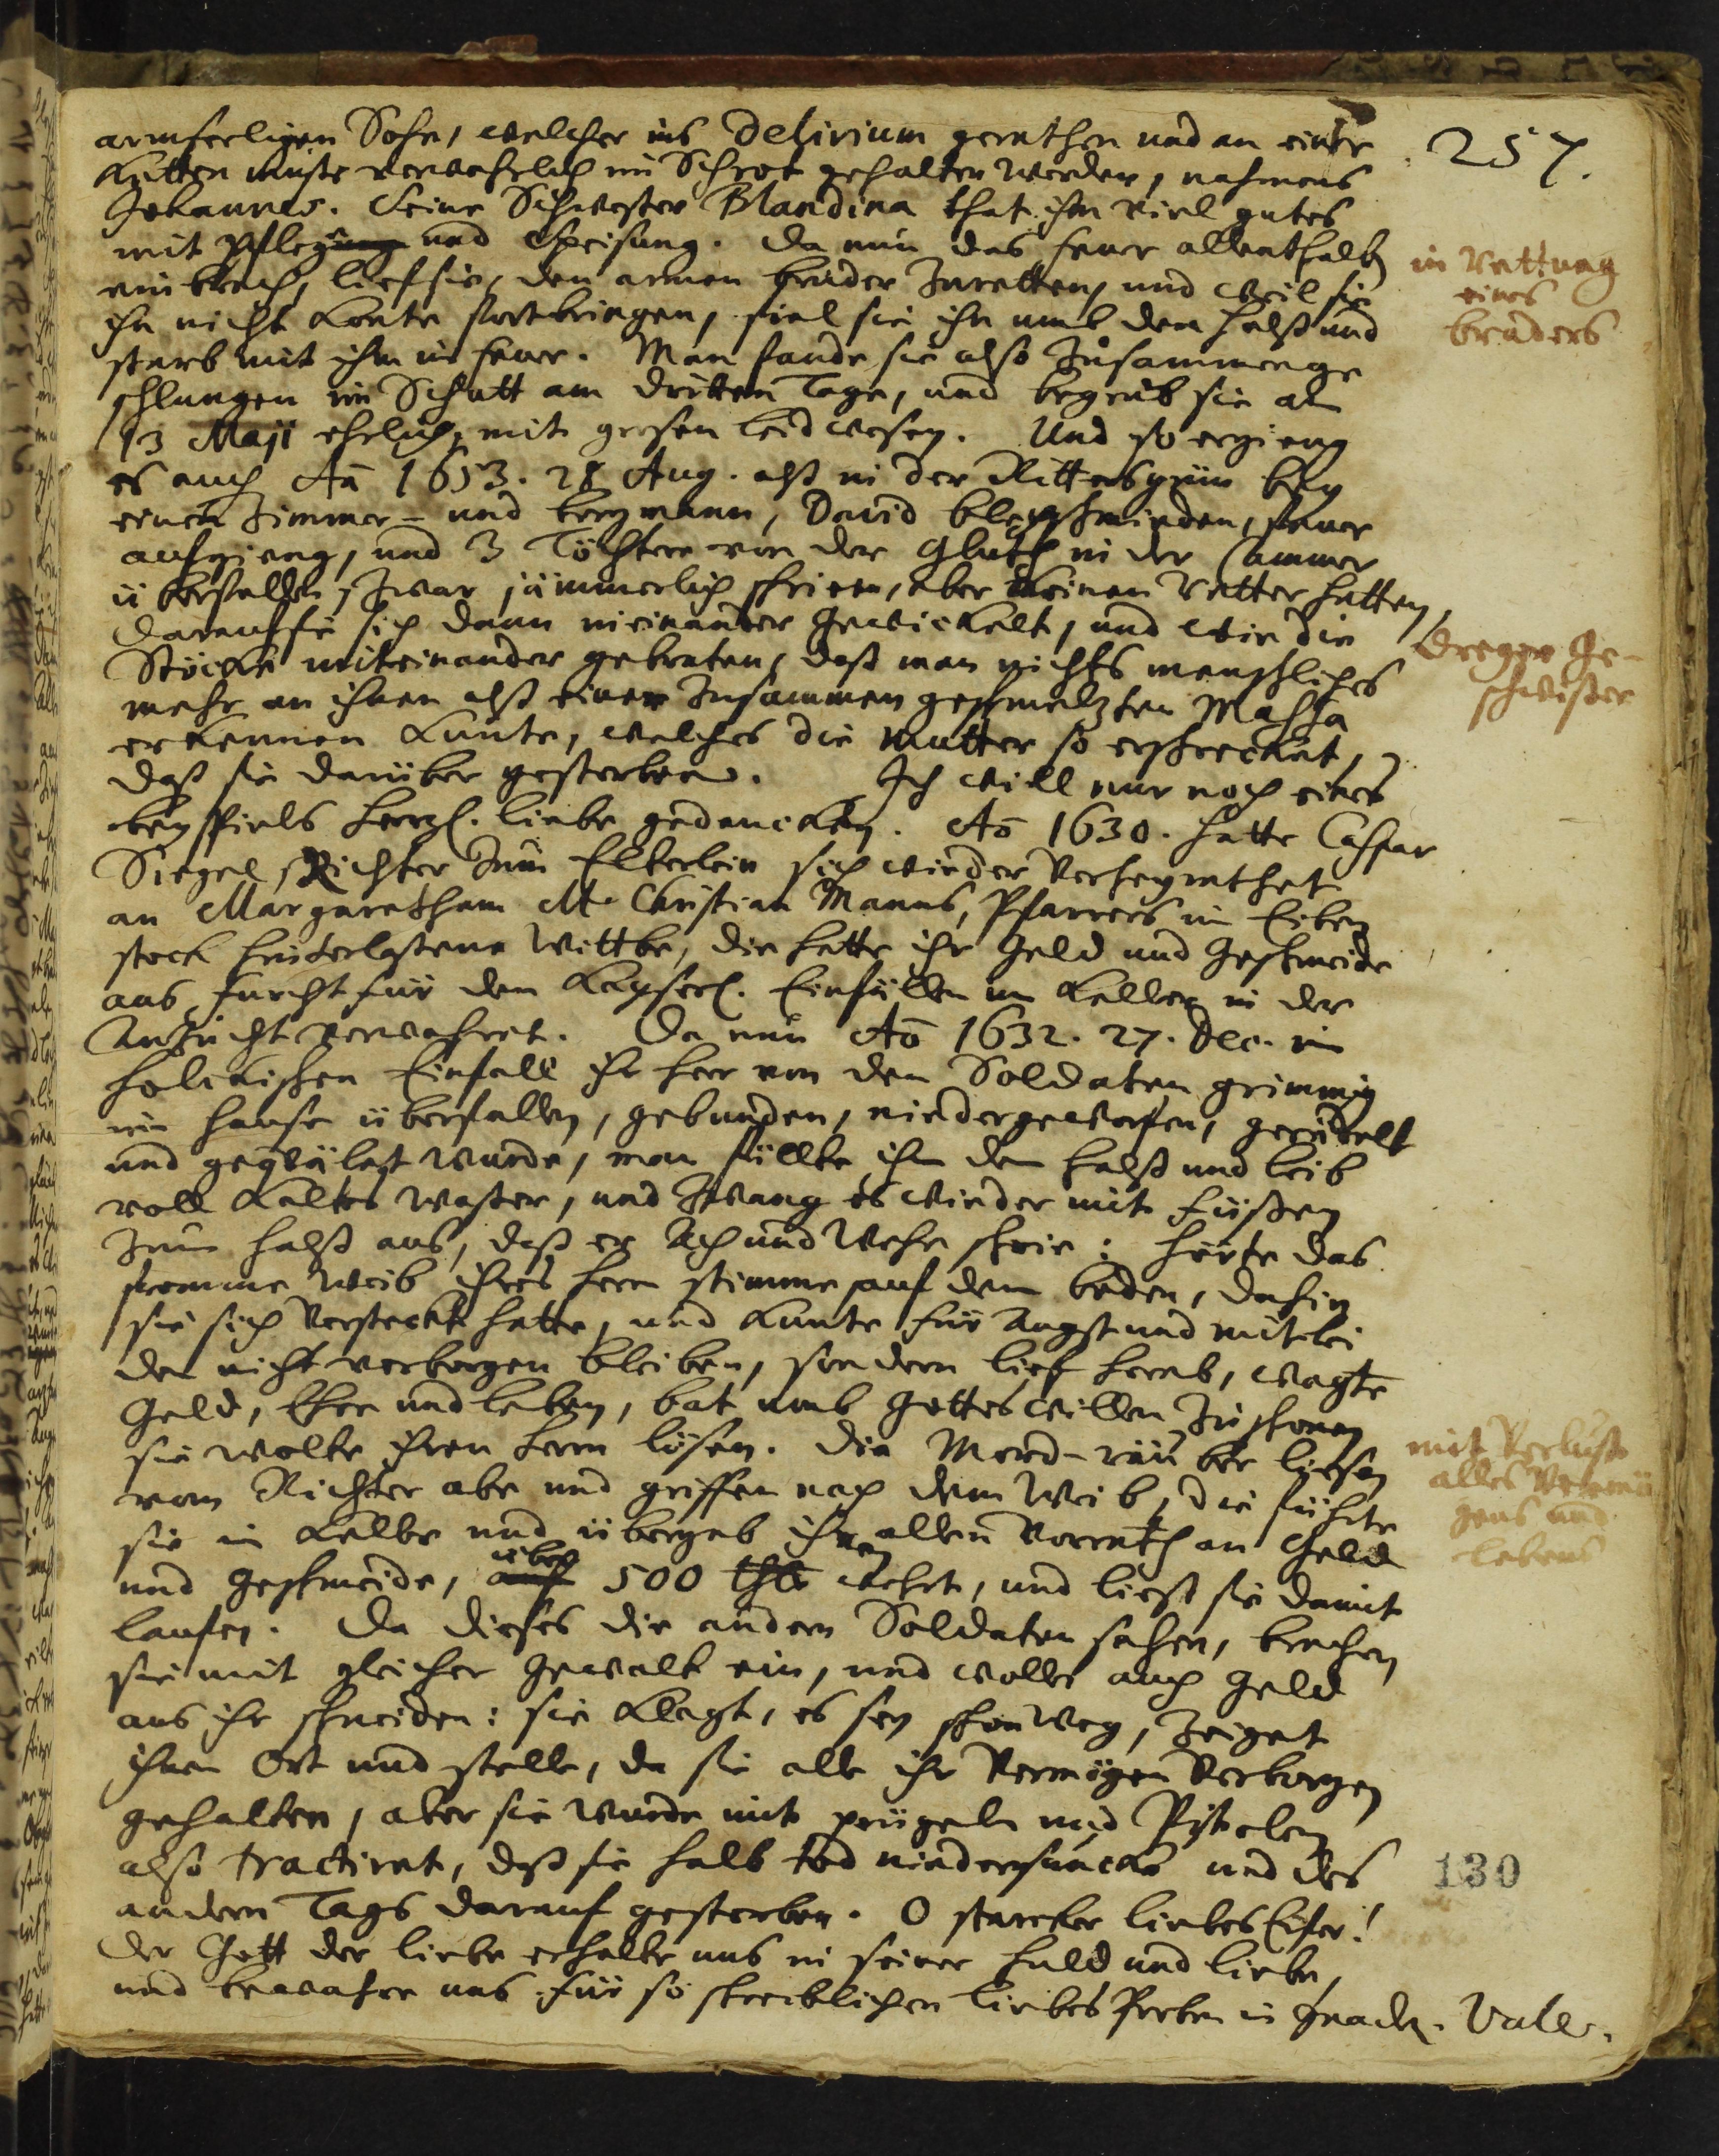 257.
armseeligen Sohn, welcher ins Delirium gerathen und an einer
Ketten muste verwahrlich im Schrot gehalten werden, nahmens
Johannes. Seine Schwester Blandina that ihm viel gutes
mit Pflegung und Speisung. Da nun das feuer allenthalb
einbrach, lief sie, den armen bruder zuretten, und weil sie
ihn nicht konte fortbringen, fiel sie ihn umb den Halß und
starb mit ihm im feuer. Man fande sie also zusammenge
schlungen im Schutt am dritten Tage, und begrub sie am
13 Maji ehrlich, mit grosen leidwesen. Und so ergieng
es auch Aõ 1653. 28 Aug. alß in der Rittersgrün bey
einem Zimmer- und bergmann, David feuer
aufgieng, und 3 Töchter von der Gluth in der Cammer
überfallen, zwar jämmerlich schrieen, aber keinen Retter hatten,
darauf sie sich dann ineinander gewickelt, und wie die
Stöcke miteinander gebraten, daß man nichts menschliches
mehr an ihnen alß einen zusammen geschmeltzten Massa
erkennen kunte, welches die Mutter so erschreckt,
daß sie darüber gestorben. Ich will nur noch eines
beyspiels hertzl. liebe gedencken. Aõ 1630. hatte Caspar
Siegel, Richter zum Elterlein sich wieder verheyrathet
an Margaretham M. Christian Manns, Pfarrers im Eiben
stock hinterlaßene Wittbe, die hatte ihr Geld und Geschmeide
aus furcht für dem Kayserl. Einfällen im Keller in der
Anzucht verwahret. Da nun Aõ 1632. 27. Dec. im
Holckischen Einfall ihr herr von den Soldaten grimmig
im hause überfallen, gebunden, niedergeworfen, geräitelt
und geqvälet wurde, man füllte ihm den halß und leib
voll kaltes waßer, und zwang es wieder mit füßen
zum halß aus, daß er Ach und Wehe schrie: hörte das
fromme Weib ihres herrn stimme auf dem boden, dahin
sie sich versteckt hatte, und kunte für Angst und mitlei
den nicht verborgen bleiben, sondern lief herab, wagte
Geld, Ehre und leben, bat umb Gottes willen zu schonen
sie wolte ihren herrn lösen. Die Mord-räuber ließen
vom Richter abe und griffen nach dem Weib, die führte
sie in Keller und übergab ihnen allen Vorrath an Geld
und Geschmeide, auf über 500 thlr wehrt, und ließ sie damit
laufen. Da dieses die andern Soldaten sahen, brachen
sie mit gleicher Gewalt ein, und wollen auch Geld
aus ihr schneiden: sie klagt, es sey schon weg, zeiget
ihnen Ort und stelle, da sie alle ihr Vermögen verborgen
gehalten, aber sie wurde mit prügeln und Pistolen
also tractiret, daß sie halb tod niedersuncke und des
andern Tags darauf gestorben. O starcker liebes Eifer!
Der Gott der liebe erhalte uns in seiner huld und liebe,
und bewahre uns für so schrecklichen liebes Proben in Gnaden. Vale.
in Rettung
eines
bruders
dreyer Ge-
schwister
mit Verlust
alles Vermö
gens und
lebens
130